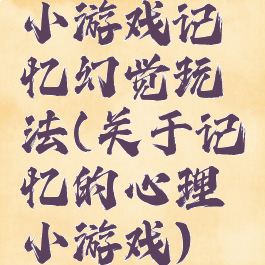 小游戏记
忆幻觉玩
法(关于记
忆的心理
小游戏)